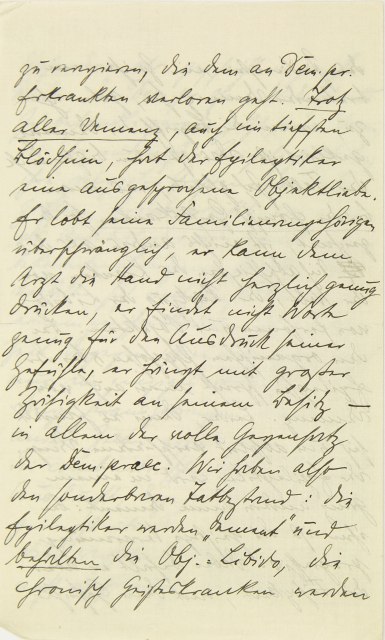 zu reagieren, die dem an Dem. pr.
Erkrankten verloren geht. Trotz
aller Demenz, auch im tiefsten
Blödsinn, hat der Epileptiker
eine ausgesprochene Objektliebe.
Er lobt seine Familienangehörigen
überschwänglich, er kann dem
Arzt die Hand nicht herzlich genug
drücken, er findet nicht Worte
genug für den Ausdruck seiner
Gefühle, er hängt mit großer
Zähigkeit an seinem Besitz —
in allem der volle Gegensatz
der Dem. praec. Wir haben also
den sonderbaren Tatbestand: die
Epileptiker werden „dement" und
behalten die Obj.=Libido, die
chronisch Geisteskranken werden